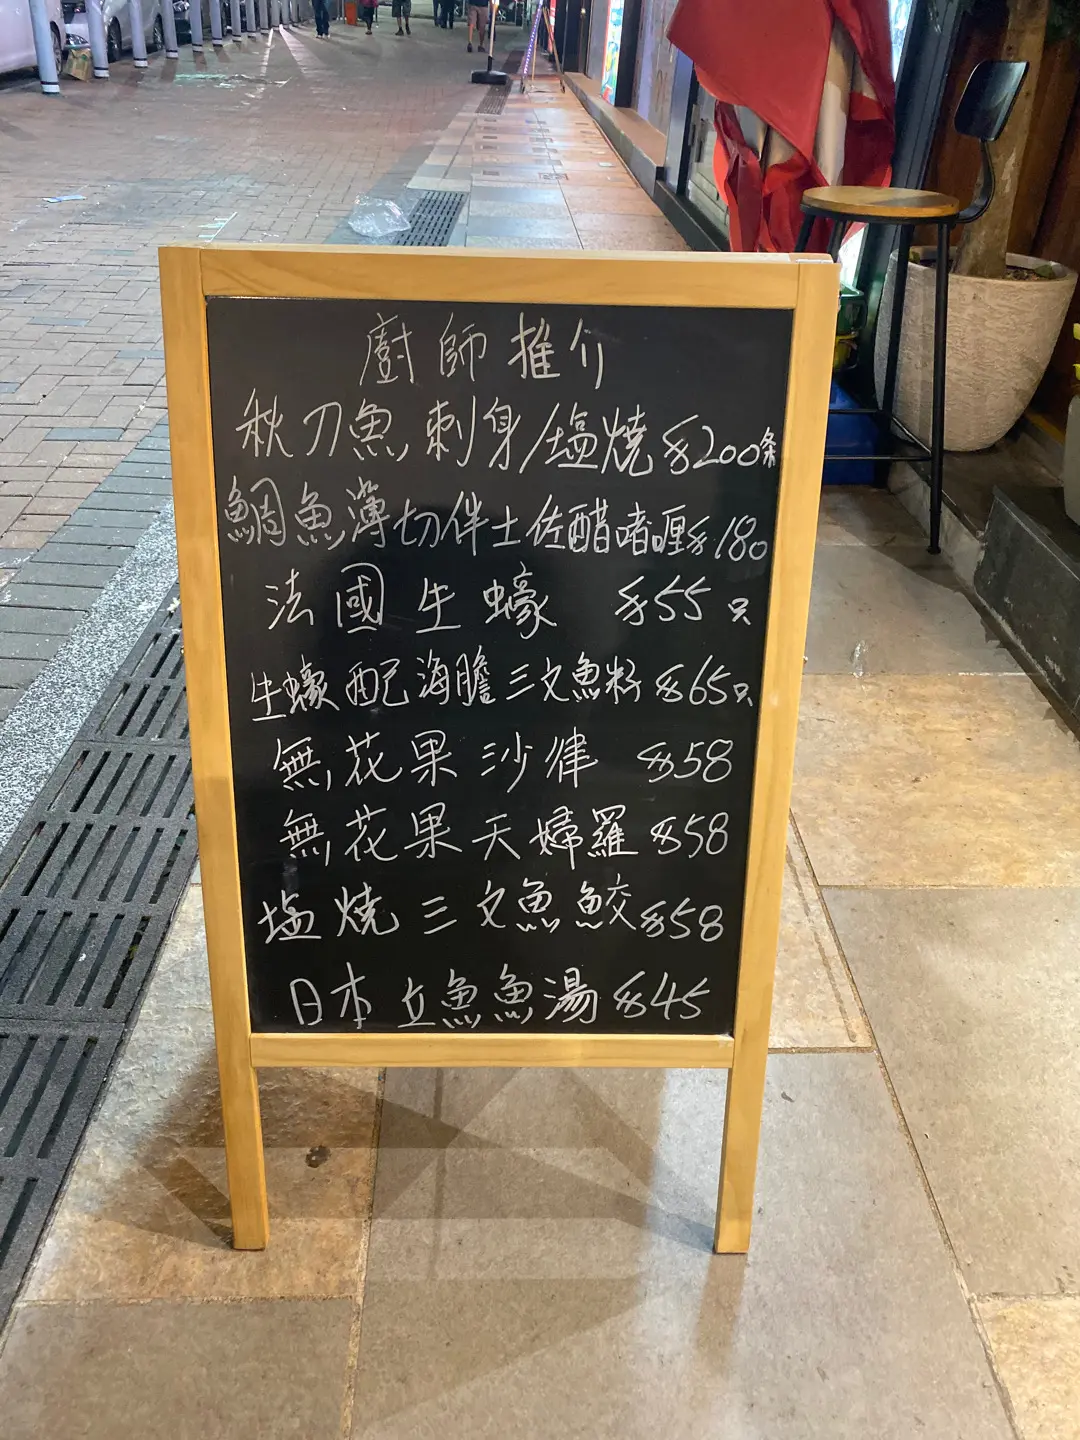 廚師推介
秋刀魚刺身/塩燒 $200條
鯛魚薄切伴士佐醋啫喱 $180
法國生蠔 $55只
生蠔配海膽三文魚籽 $65只
無花果沙律 $58
無花果天婦羅 $58
塩燒三文魚鮫 $58
日本立魚魚湯 $45